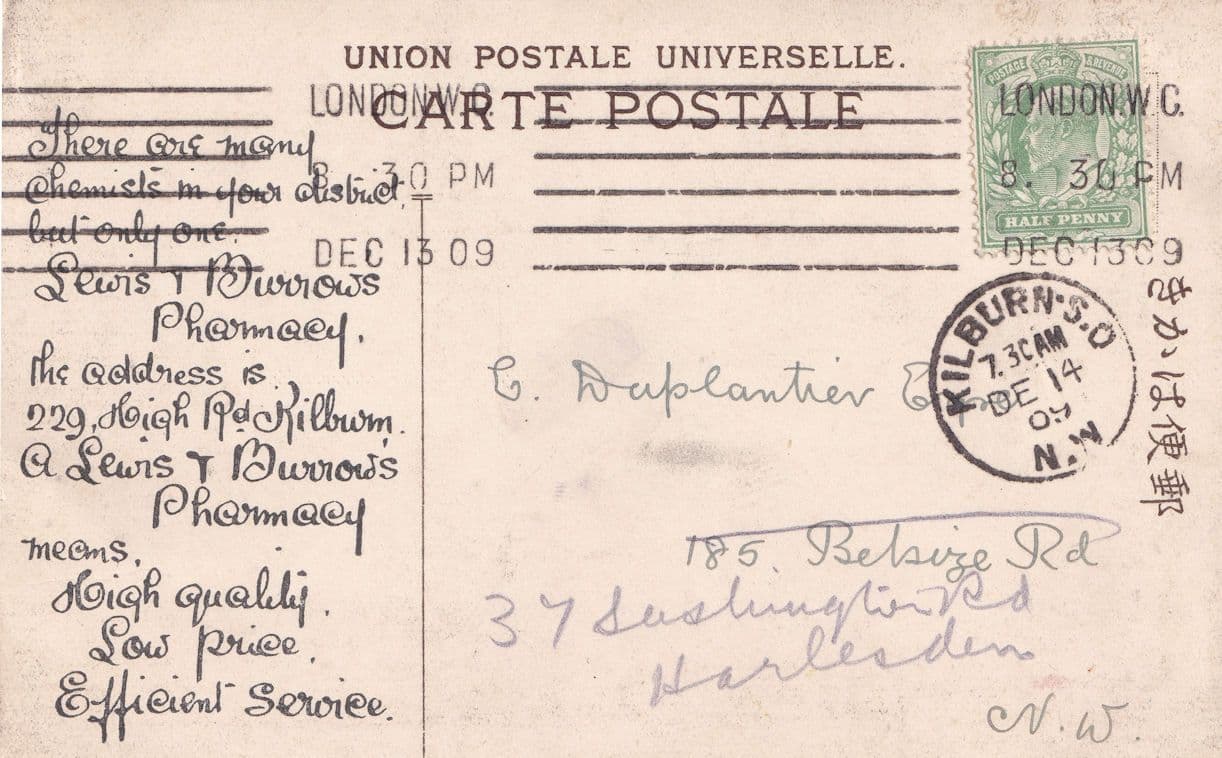 UNION POSTALE UNIVERSELLE.
CARTE POSTALE
LONDON.W.C.
8. 30 PM
DEC 13 09
POSTAGE & REVENUE
HALF PENNY
LONDON.W.C.
8. 30 PM
DEC 13 09
KILBURN.S.O
7.30AM
DE 14
09
N.W
きかは便郵
There are many
Chemists in your district,
but only one.
Lewis & Burrows
Pharmacy.
the address is
229, High Rd Kilburn.
A Lewis & Burrows
Pharmacy
means.
High quality.
Low price.
Efficient Service.
E. Duplantier Esq
185. Belsize Rd
37
Rd
Harlesden
N.W.